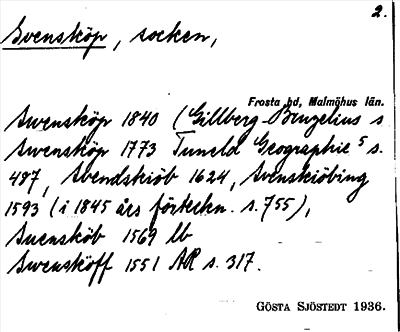 2.
Svensköp, socken,
Frosta hd, Malmöhus län.
Swensköp 1840 (Gillberg-Bruzelius s
Swensköp 1773 Tuneld Geographie 5 s.
487, Svendskiöb 1624, Svenskiöbing
1593 (i 1845 års förteckn. s. 755),
Suensköb 1569 lb
Swensköff 1551 AR s. 317.
GÖSTA SJÖSTEDT 1936.